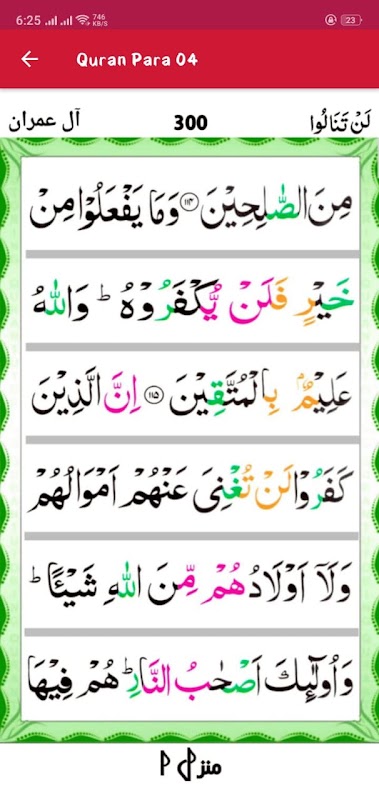 6:25 746 KB/S 23
Quran Para 04
آل عمران 300 لَنْ تَنَالُوا
مِنَ الصّٰلِحِيْنَ ۝۱۱۴ وَمَا يَفْعَلُوْا مِنْ
خَيْرٍ فَلَنْ يُّكْفَرُوْهُ ؕ وَاللّٰهُ
عَلِيْمٌۢ بِالْمُتَّقِيْنَ ۝۱۱۵ اِنَّ الَّذِيْنَ
كَفَرُوْا لَنْ تُغْنِىَ عَنْهُمْ اَمْوَالُهُمْ
وَلَاۤ اَوْلَادُهُمْ مِّنَ اللّٰهِ شَيْـًٔا ؕ
وَاُولٰٓئِكَ اَصْحٰبُ النَّارِ ؕ هُمْ فِيْهَا
منزل